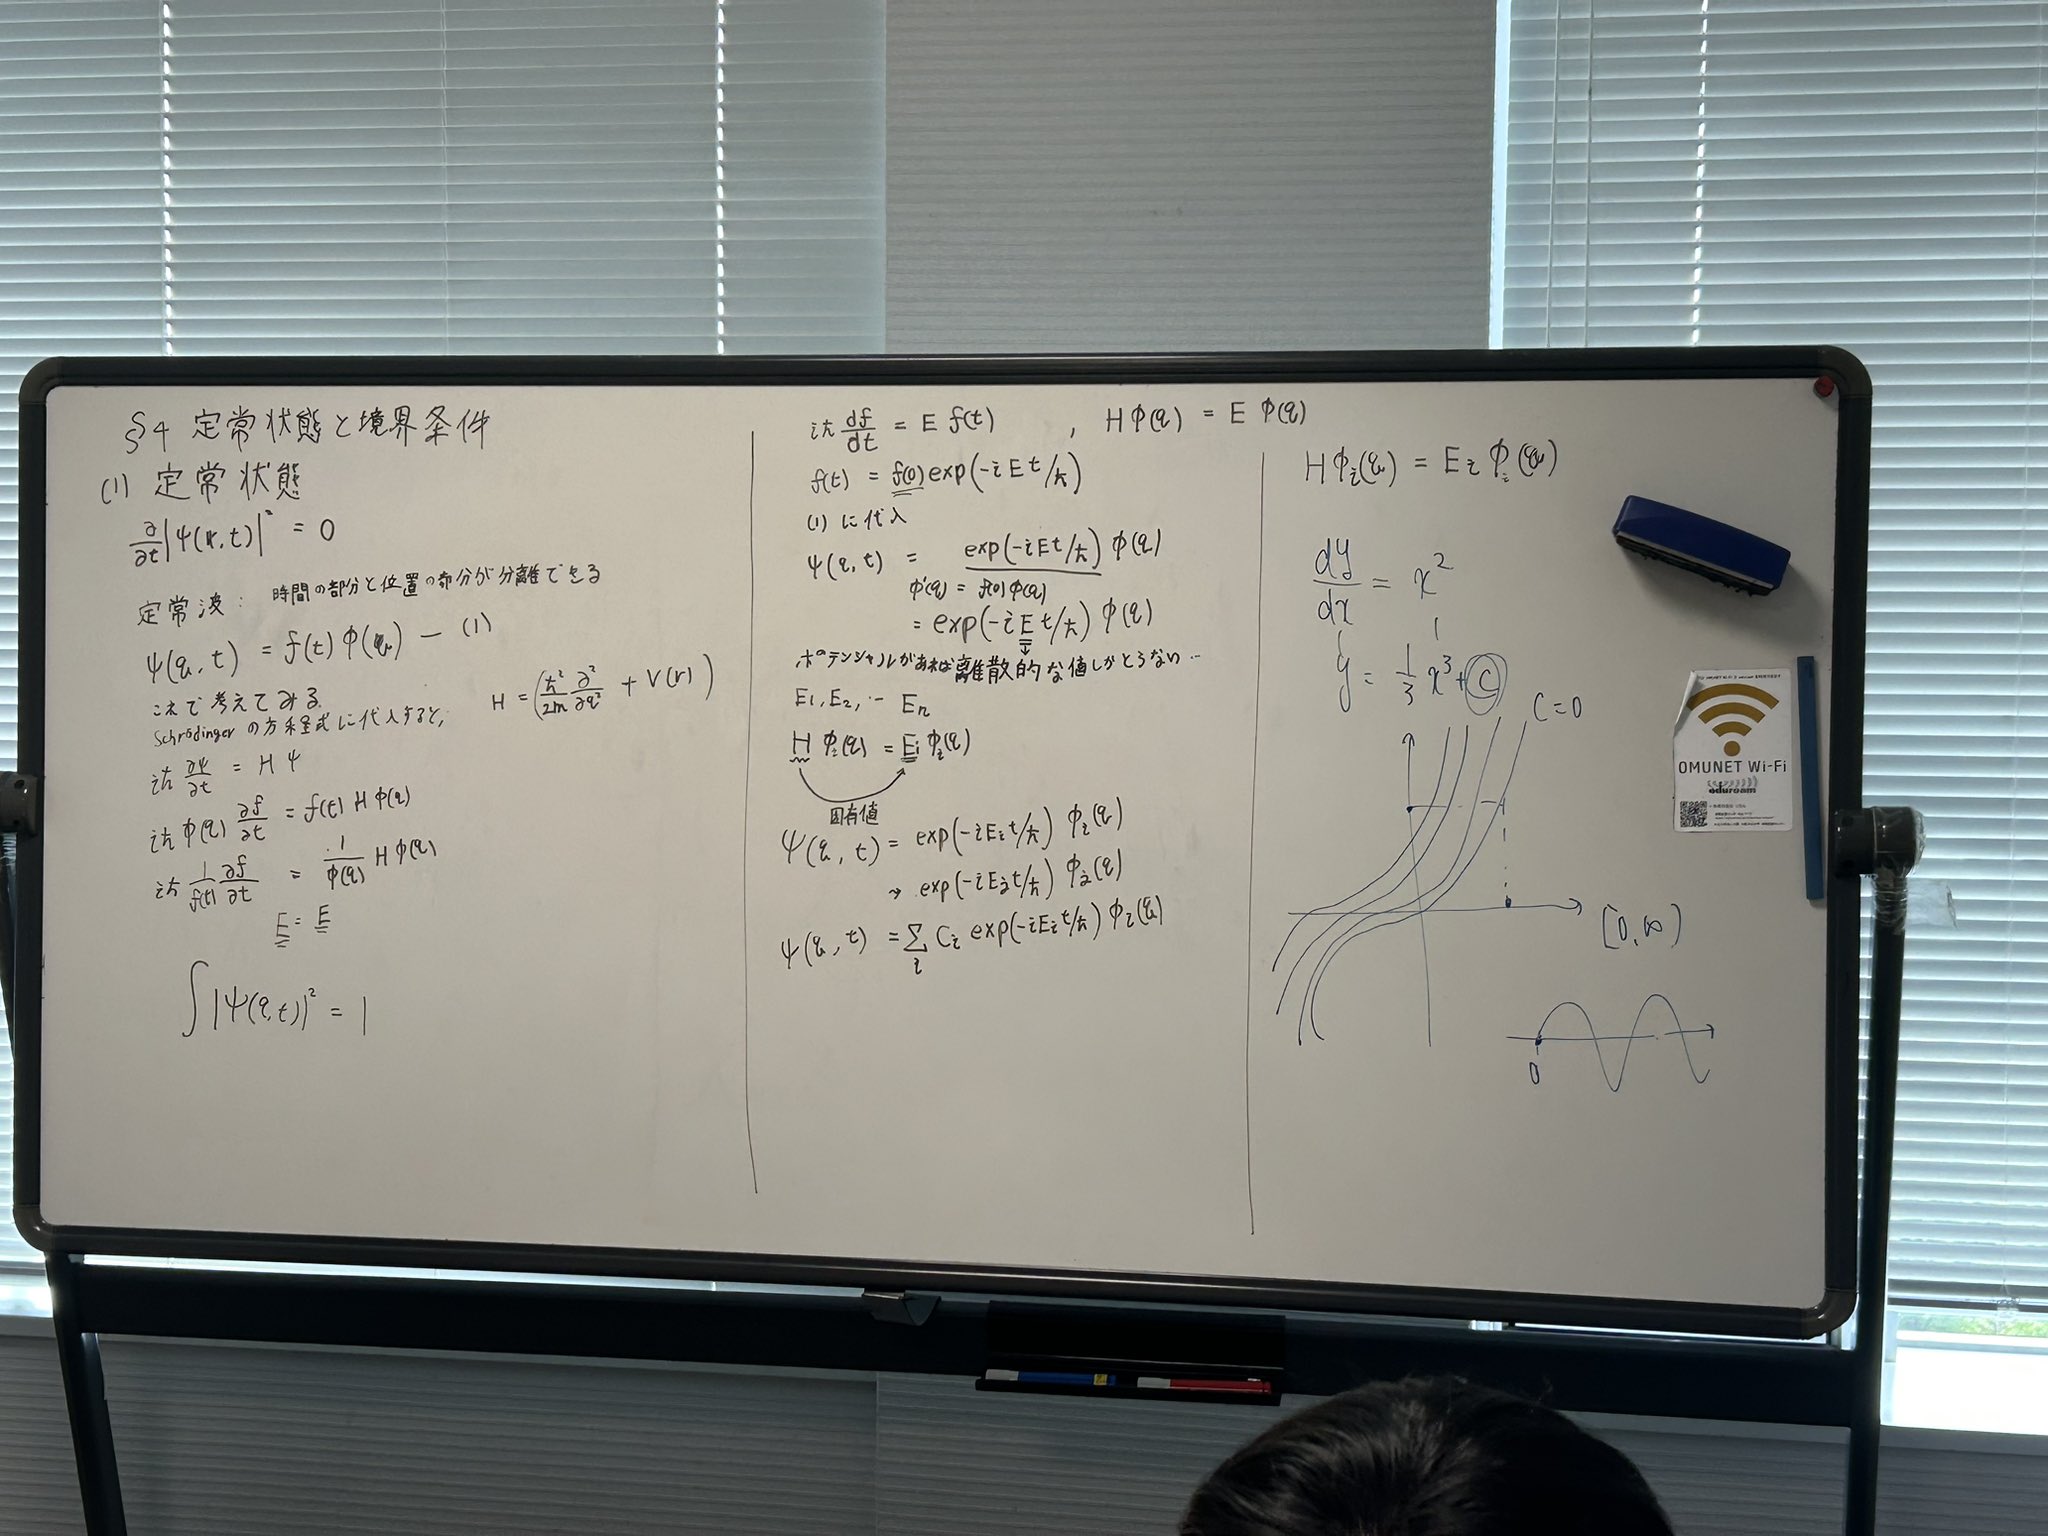 §4 定常状態と境界条件
(1) 定常状態
∂/∂t |Ψ(r,t)|² = 0
定常波: 時間の部分と位置の部分が分離できる
Ψ(q,t) = f(t) Φ(q) — (1)
これで考えてみる
Schrödingerの方程式に代入すると,
H = (ħ²/2m ∂²/∂q² + V(r))
iħ ∂Ψ/∂t = HΨ
iħ Φ(q) ∂f/∂t = f(t) H Φ(q)
iħ 1/f(t) ∂f/∂t = 1/Φ(q) H Φ(q)
E = E
∫|Ψ(q,t)|² = 1
iħ df/dt = E f(t) , HΦ(q) = E Φ(q)
f(t) = f(0) exp(-iEt/ħ)
(1) に代入
Ψ(q,t) = exp(-iEt/ħ) Φ(q)
Φ'(q) = f(0) Φ(q)
= exp(-iEt/ħ) Φ(q)
ポテンシャルがあれば離散的な値しかとらない…
E1, E2, … En
H Φi(q) = Ei Φi(q)
固有値
Ψ(q,t) = exp(-iEit/ħ) Φi(q)
→ exp(-iE2t/ħ) Φ2(q)
Ψ(q,t) = Σi Ci exp(-iEit/ħ) Φi(q)
HΦi(q) = Ei Φi(q)
dy/dx = x²
y = 1/3 x³ + C
C=0
[0,∞)
0
OMUNET Wi-Fi
eduroam